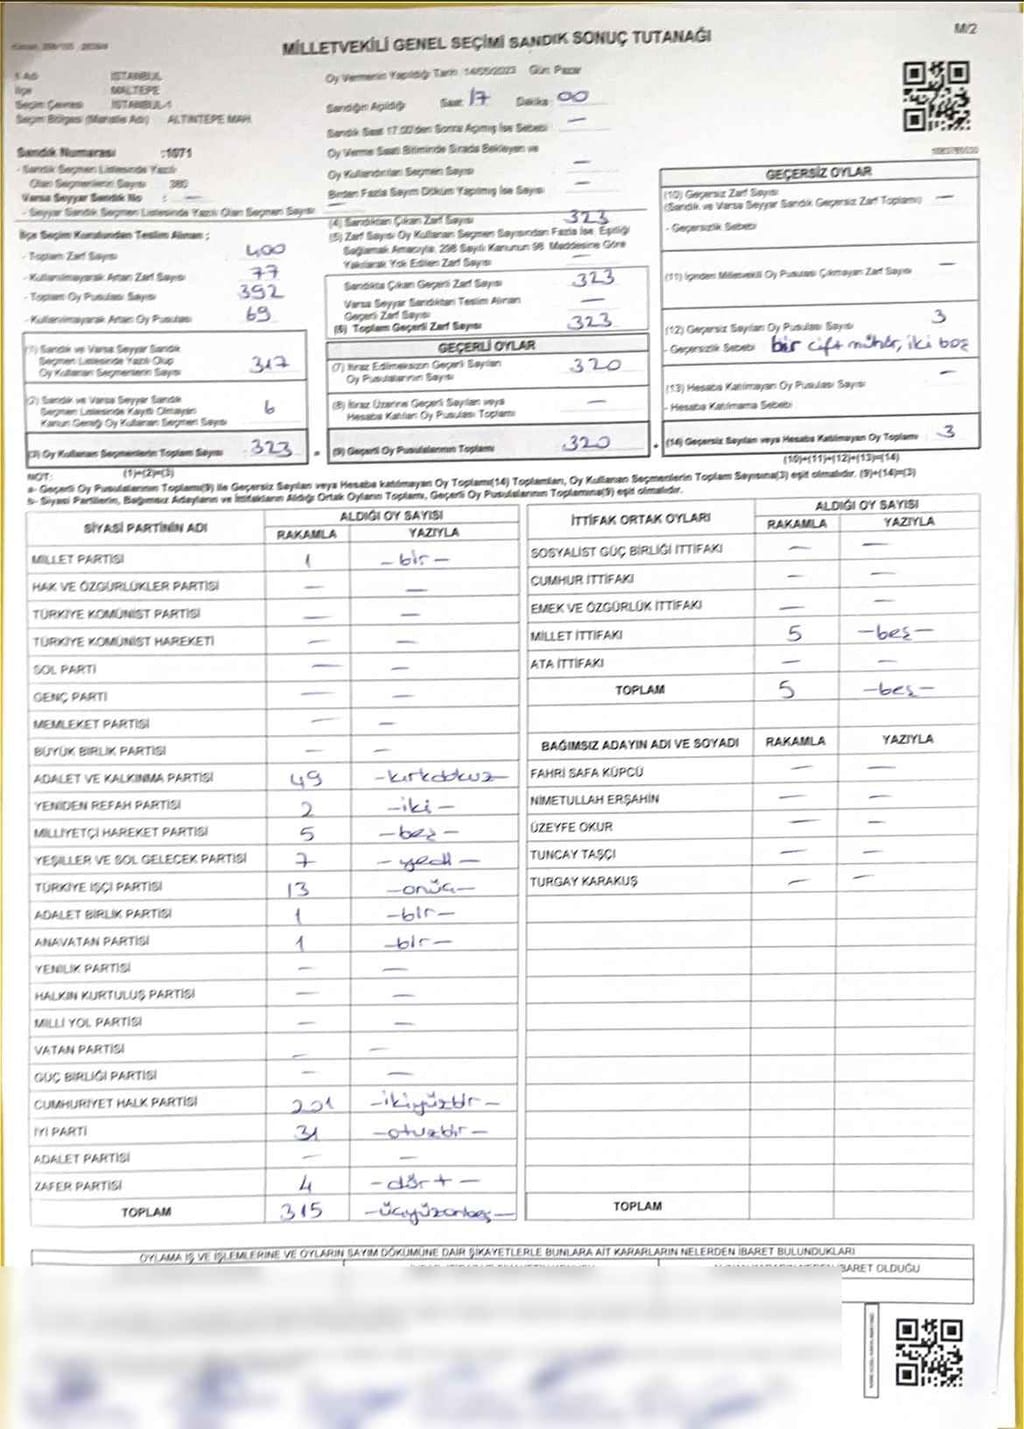 M/2
MİLLETVEKİLİ GENEL SEÇİMİ SANDIK SONUÇ TUTANAĞI
İSTANBUL
İlçe MALTEPE
Seçim Çevresi İSTANBUL-1
Seçim Bölgesi (Mahalle Adı) ALTINTEPE MAH.
Sandık Numarası :1071
- Sandık Seçmen Listesinde Yazılı
Olan Seçmenlerin Sayısı 380
Varsa Seyyar Sandık No : —
- Seyyar Sandık Seçmen Listesinde Yazılı Olan Seçmen Sayısı —
İlçe Seçim Kurulundan Teslim Alınan ;
- Toplam Zarf Sayısı 400
- Kullanılmayarak Artan Zarf Sayısı 77
- Toplam Oy Pusulası Sayısı 392
- Kullanılmayarak Artan Oy Pusulası 69
(1) Sandık ve Varsa Seyyar Sandık
Seçmen Listesinde Yazılı Olup
Oy Kullanan Seçmenlerin Sayısı 317
(2) Sandık ve Varsa Seyyar Sandık
Seçmen Listesinde Kayıtlı Olmayan
Kanun Gereği Oy Kullanan Seçmen Sayısı 6
(3) Oy Kullanan Seçmenlerin Toplam Sayısı 323
(1)+(2)=(3)
Oy Vermenin Yapıldığı Tarih 14/05/2023 Gün Pazar
Sandığın Açıldığı Saat 17 Dakika 00
Sandık Saat 17.00'den Sonra Açılmış İse Sebebi —
Oy Verme Saati Bitiminde Sırada Bekleyen ve
Oy Kullandırılan Seçmen Sayısı —
Birden Fazla Sayım Döküm Yapılmış İse Sayısı —
(4) Sandıktan Çıkan Zarf Sayısı 323
(5) Zarf Sayısı Oy Kullanan Seçmen Sayısından Fazla İse, Eşitliği
Sağlamak Amacıyla, 298 Sayılı Kanunun 98. Maddesine Göre
Yakılarak Yok Edilen Zarf Sayısı —
Sandıkta Çıkan Geçerli Zarf Sayısı 323
Varsa Seyyar Sandıktan Teslim Alınan
Geçerli Zarf Sayısı —
(6) Toplam Geçerli Zarf Sayısı 323
GEÇERLİ OYLAR
(7) İtiraz Edilmeksizin Geçerli Sayılan
Oy Pusulalarının Sayısı 320
(8) İtiraz Üzerine Geçerli Sayılan veya
Hesaba Katılan Oy Pusulası Toplamı —
(9) Geçerli Oy Pusulalarının Toplamı 320
GEÇERSİZ OYLAR
(10) Geçersiz Zarf Sayısı
(Sandık ve Varsa Seyyar Sandık Geçersiz Zarf Toplamı) —
- Geçersizlik Sebebi
(11) İçinden Milletvekili Oy Pusulası Çıkmayan Zarf Sayısı —
(12) Geçersiz Sayılan Oy Pusulası Sayısı 3
- Geçersizlik Sebebi bir çift mühür, iki boş
(13) Hesaba Katılmayan Oy Pusulası Sayısı —
- Hesaba Katılmama Sebebi
(14) Geçersiz Sayılan veya Hesaba Katılmayan Oy Toplamı 3
(10)+(11)+(12)+(13)=(14)
NOT:
a- Geçerli Oy Pusulalarının Toplamı(9) ile Geçersiz Sayılan veya Hesaba katılmayan Oy Toplamı(14) Toplamları, Oy Kullanan Seçmenlerin Toplam Sayısına(3) eşit olmalıdır. (9)+(14)=(3)
b- Siyasi Partilerin, Bağımsız Adayların ve İttifakların Aldığı Ortak Oyların Toplamı, Geçerli Oy Pusulalarının Toplamına(9) eşit olmalıdır.
SİYASİ PARTİNİN ADI ALDIĞI OY SAYISI
RAKAMLA YAZIYLA
MİLLET PARTİSİ 1 —bir—
HAK VE ÖZGÜRLÜKLER PARTİSİ — —
TÜRKİYE KOMÜNİST PARTİSİ — —
TÜRKİYE KOMÜNİST HAREKETİ — —
SOL PARTİ — —
GENÇ PARTİ — —
MEMLEKET PARTİSİ — —
BÜYÜK BİRLİK PARTİSİ — —
ADALET VE KALKINMA PARTİSİ 49 —kırkdokuz—
YENİDEN REFAH PARTİSİ 2 —iki—
MİLLİYETÇİ HAREKET PARTİSİ 5 —beş—
YEŞİLLER VE SOL GELECEK PARTİSİ 7 —yedi—
TÜRKİYE İŞÇİ PARTİSİ 13 —onüç—
ADALET BİRLİK PARTİSİ 1 —bir—
ANAVATAN PARTİSİ 1 —bir—
YENİLİK PARTİSİ — —
HALKIN KURTULUŞ PARTİSİ — —
MİLLİ YOL PARTİSİ — —
VATAN PARTİSİ — —
GÜÇ BİRLİĞİ PARTİSİ — —
CUMHURİYET HALK PARTİSİ 201 —ikiyüzbir—
İYİ PARTİ 31 —otuzbir—
ADALET PARTİSİ — —
ZAFER PARTİSİ 4 —dört—
TOPLAM 315 —üçyüzonbeş—
İTTİFAK ORTAK OYLARI ALDIĞI OY SAYISI
RAKAMLA YAZIYLA
SOSYALİST GÜÇ BİRLİĞİ İTTİFAKI — —
CUMHUR İTTİFAKI — —
EMEK VE ÖZGÜRLÜK İTTİFAKI — —
MİLLET İTTİFAKI 5 —beş—
ATA İTTİFAKI — —
TOPLAM 5 —beş—
BAĞIMSIZ ADAYIN ADI VE SOYADI RAKAMLA YAZIYLA
FAHRİ SAFA KÜPCÜ — —
NİMETULLAH ERŞAHİN — —
ÜZEYFE OKUR — —
TUNCAY TAŞÇI — —
TURGAY KARAKUŞ — —
TOPLAM
OYLAMA İŞ VE İŞLEMLERİNE VE OYLARIN SAYIM DÖKÜMÜNE DAİR ŞİKAYETLERLE BUNLARA AİT KARARLARIN NELERDEN İBARET BULUNDUKLARI
İBARET OLDUĞU